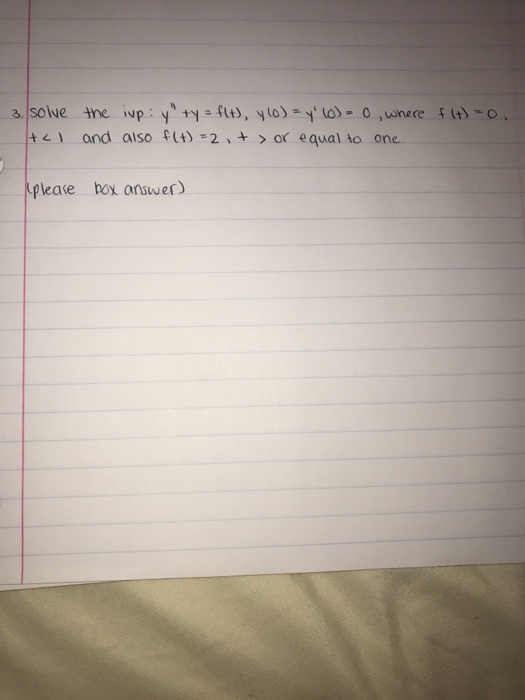 3. solve the ivp: y" + y = f(t), y(0) = y'(0) = 0, where f(t) = 0,
t < 1 and also f(t) = 2, t > or equal to one.
(please box answer)